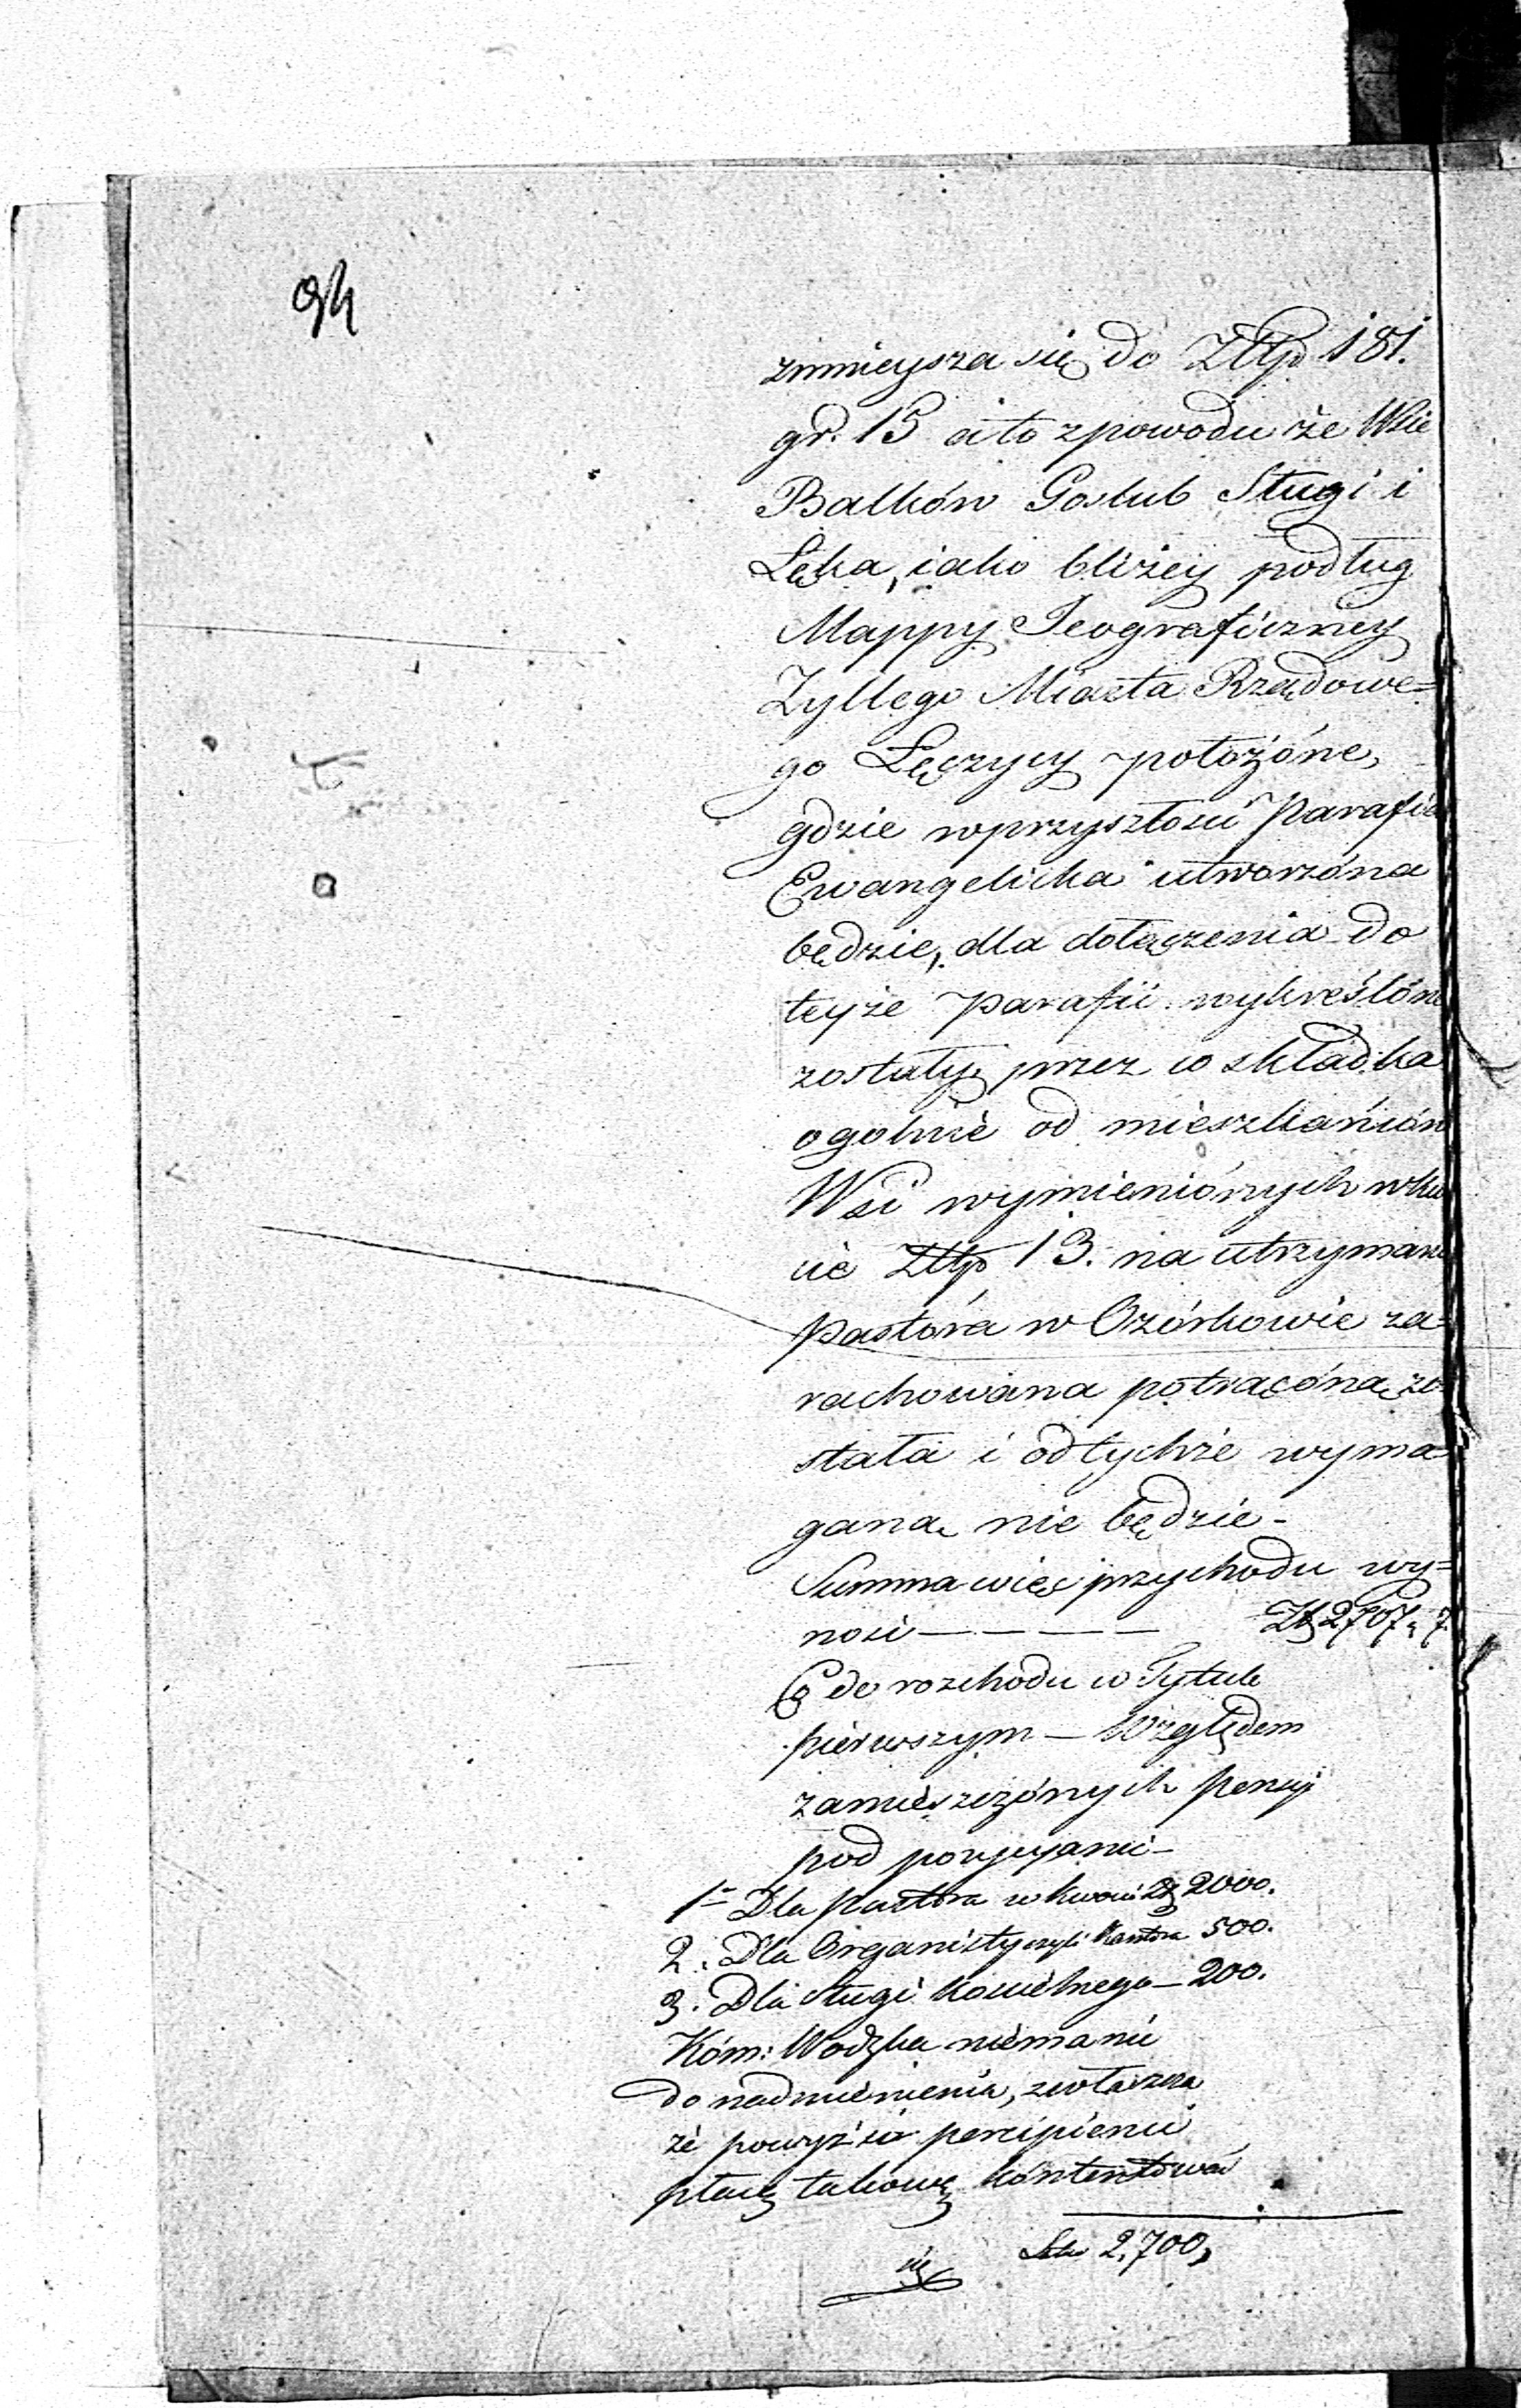 94
zmnieysza się do Złtp 181.
gr. 15 a to z powodu że Wsie
Balków Goslub Sługi i
Lęka, iako bliżey podług
Mappy Jeograficzney
Zyllego Miasta Rządowe=
go Łęczycy położóne,
gdzie w przyszłości Parafia
Ewangelicka utworzóna
będzie, dla dołączenia do
teyże Parafii wykreślóne
zostały, przez co składka
ogolnie od mieszkańców
Wsi wymieniónych w kwo
cie Złtp 13. na utrzymanie
Pastóra w Ozórkowie za=
rachowana potrącóną zo
stała i od tychże wyma
ganą nie będzie -
Summa więc przychodu wy=
nosi — — — — Zł 2707, 7.
Co do rozchodu w Tytule
pierwszym — Względem
zamieszczónych Pensyi
pod pozycyami -
1o Dla Pastóra w kwocie Zł 2000.
2. Dla Organisty czyli Kantora 500.
3. Dla Sługi Kościelnego — 200.
Kóm: Wodzka niema nic
do nadmienienia, zwłaszcza
że powyżsi percipienci
płacą takową kóntentować
się
Suma 2,700,